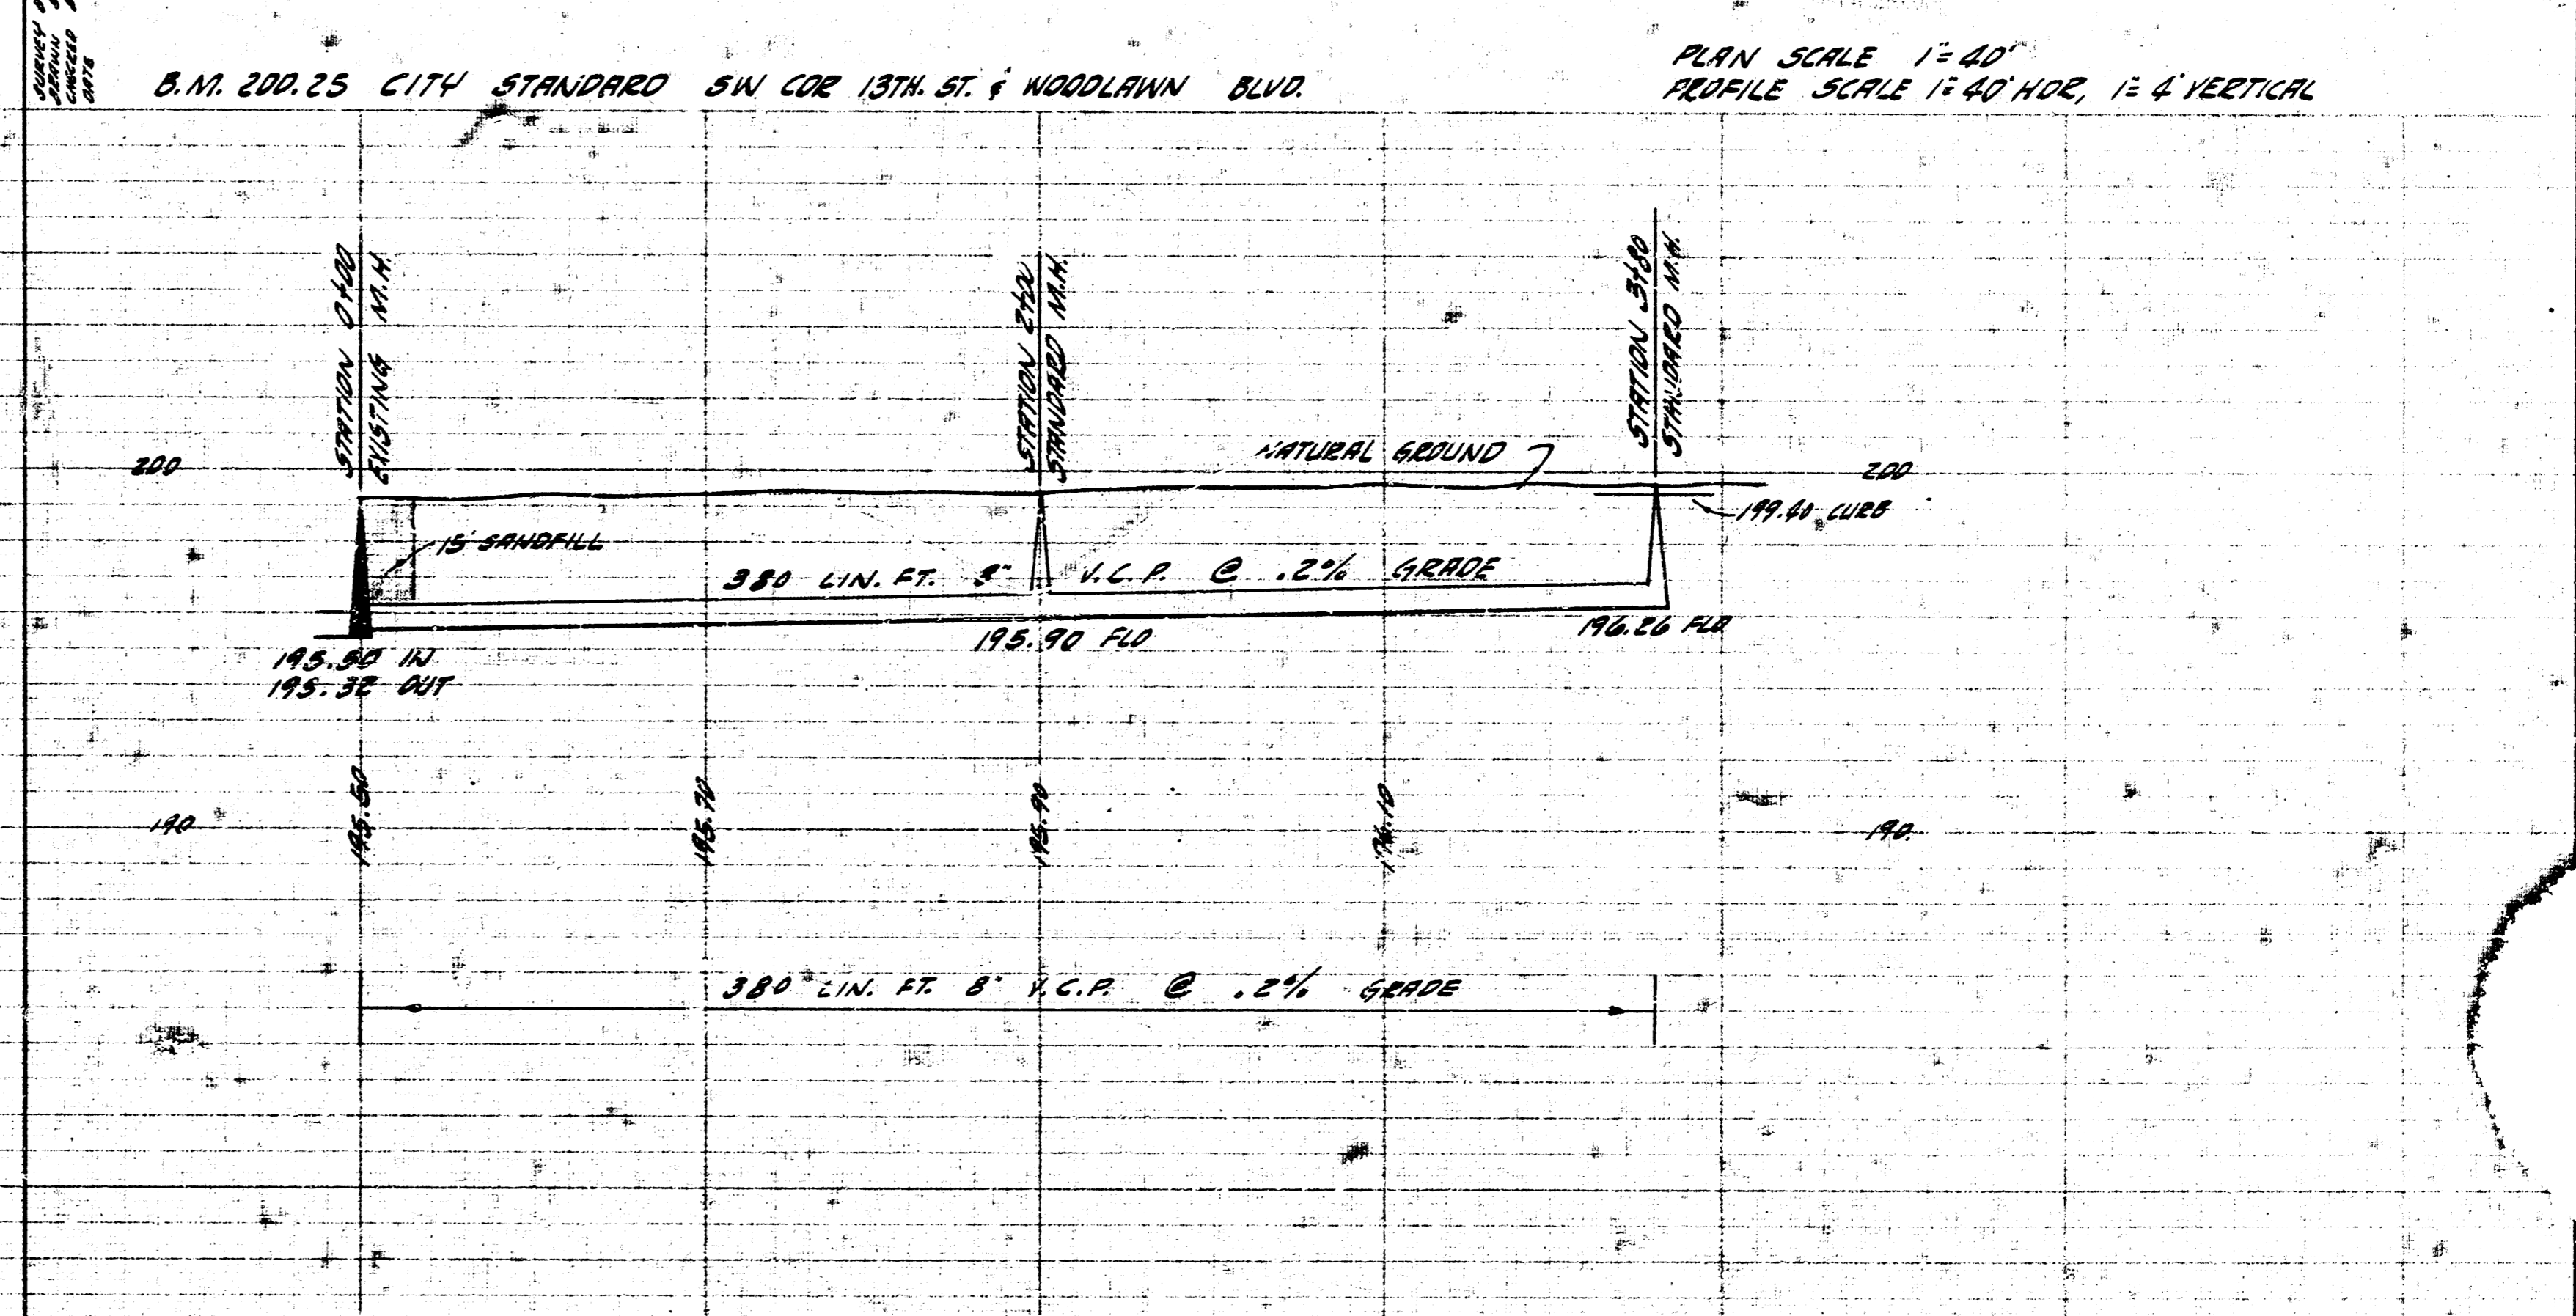 SURVEY
DRAWN
CHECKED
DATE
B.M. 200.25 CITY STANDARD SW COR 13TH. ST. & WOODLAWN BLVD.
PLAN SCALE 1"=40'
PROFILE SCALE 1"=40' HOR, 1"=4' VERTICAL
STATION 0+00
EXISTING M.H.
STATION 2+00
STANDARD M.H.
STATION 3+80
STANDARD M.H.
NATURAL GROUND
200
200
199.40 CURB
15' SANDFILL
380 LIN. FT. 8" V.C.P. @ .2% GRADE
195.50 IN
195.32 OUT
195.90 FLO
196.26 FLO
195.50
195.70
195.90
196.10
190
190
380 LIN. FT. 8" V.C.P. @ .2% GRADE